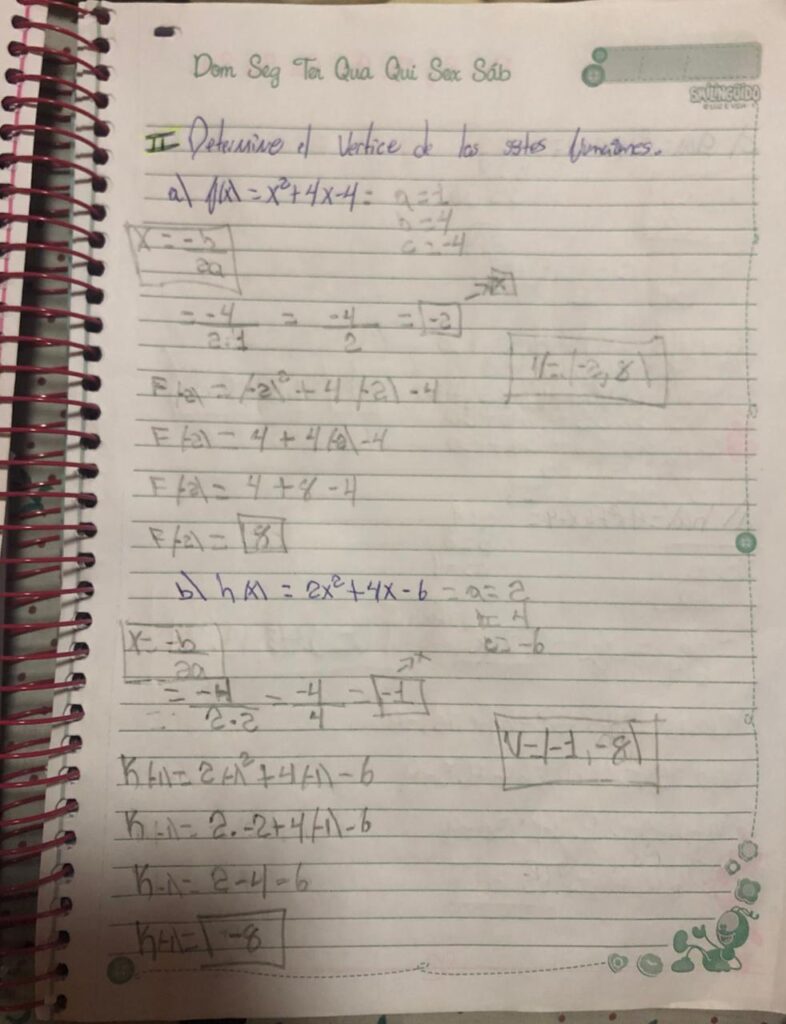 Dom Seg Ter Qua Qui Sex Sáb
SMILINGÜIDO
II Determine el vertice de las sgtes funciones.
a) f(x) = x²+4x-4 = a=1
b=4
c=-4
x = -b
2a
= -4 = -4 = -2 → x
2·1 2
V=(-2, 8)
F(-2) = (-2)² + 4(-2) -4
F(-2) = 4 + 4(-2) -4
F(-2) = 4 + 8 - 4
F(-2) = 8
b) h(x) = 2x²+4x-6 = a=2
b=4
c=-6
x = -b
2a
→ x
= -4 = -4 = -1
2·2 4
V=(-1, -8)
K(-1) = 2(-1)² + 4(-1) - 6
K(-1) = 2·-2+4(-1)-6
K-1) = 2-4-6
K(-1) = -8